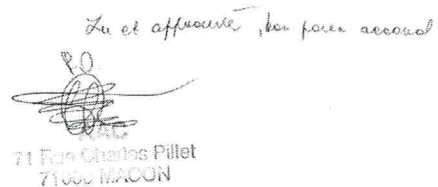 Lu et approuvé, bon pour accord
P.O
71 Rue Charles Pillet
71000 MACON